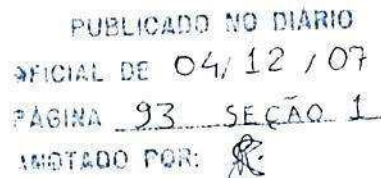 PUBLICADO NO DIÁRIO
OFICIAL DE 04/12/07
PÁGINA 93 SEÇÃO 1
ANOTADO POR: